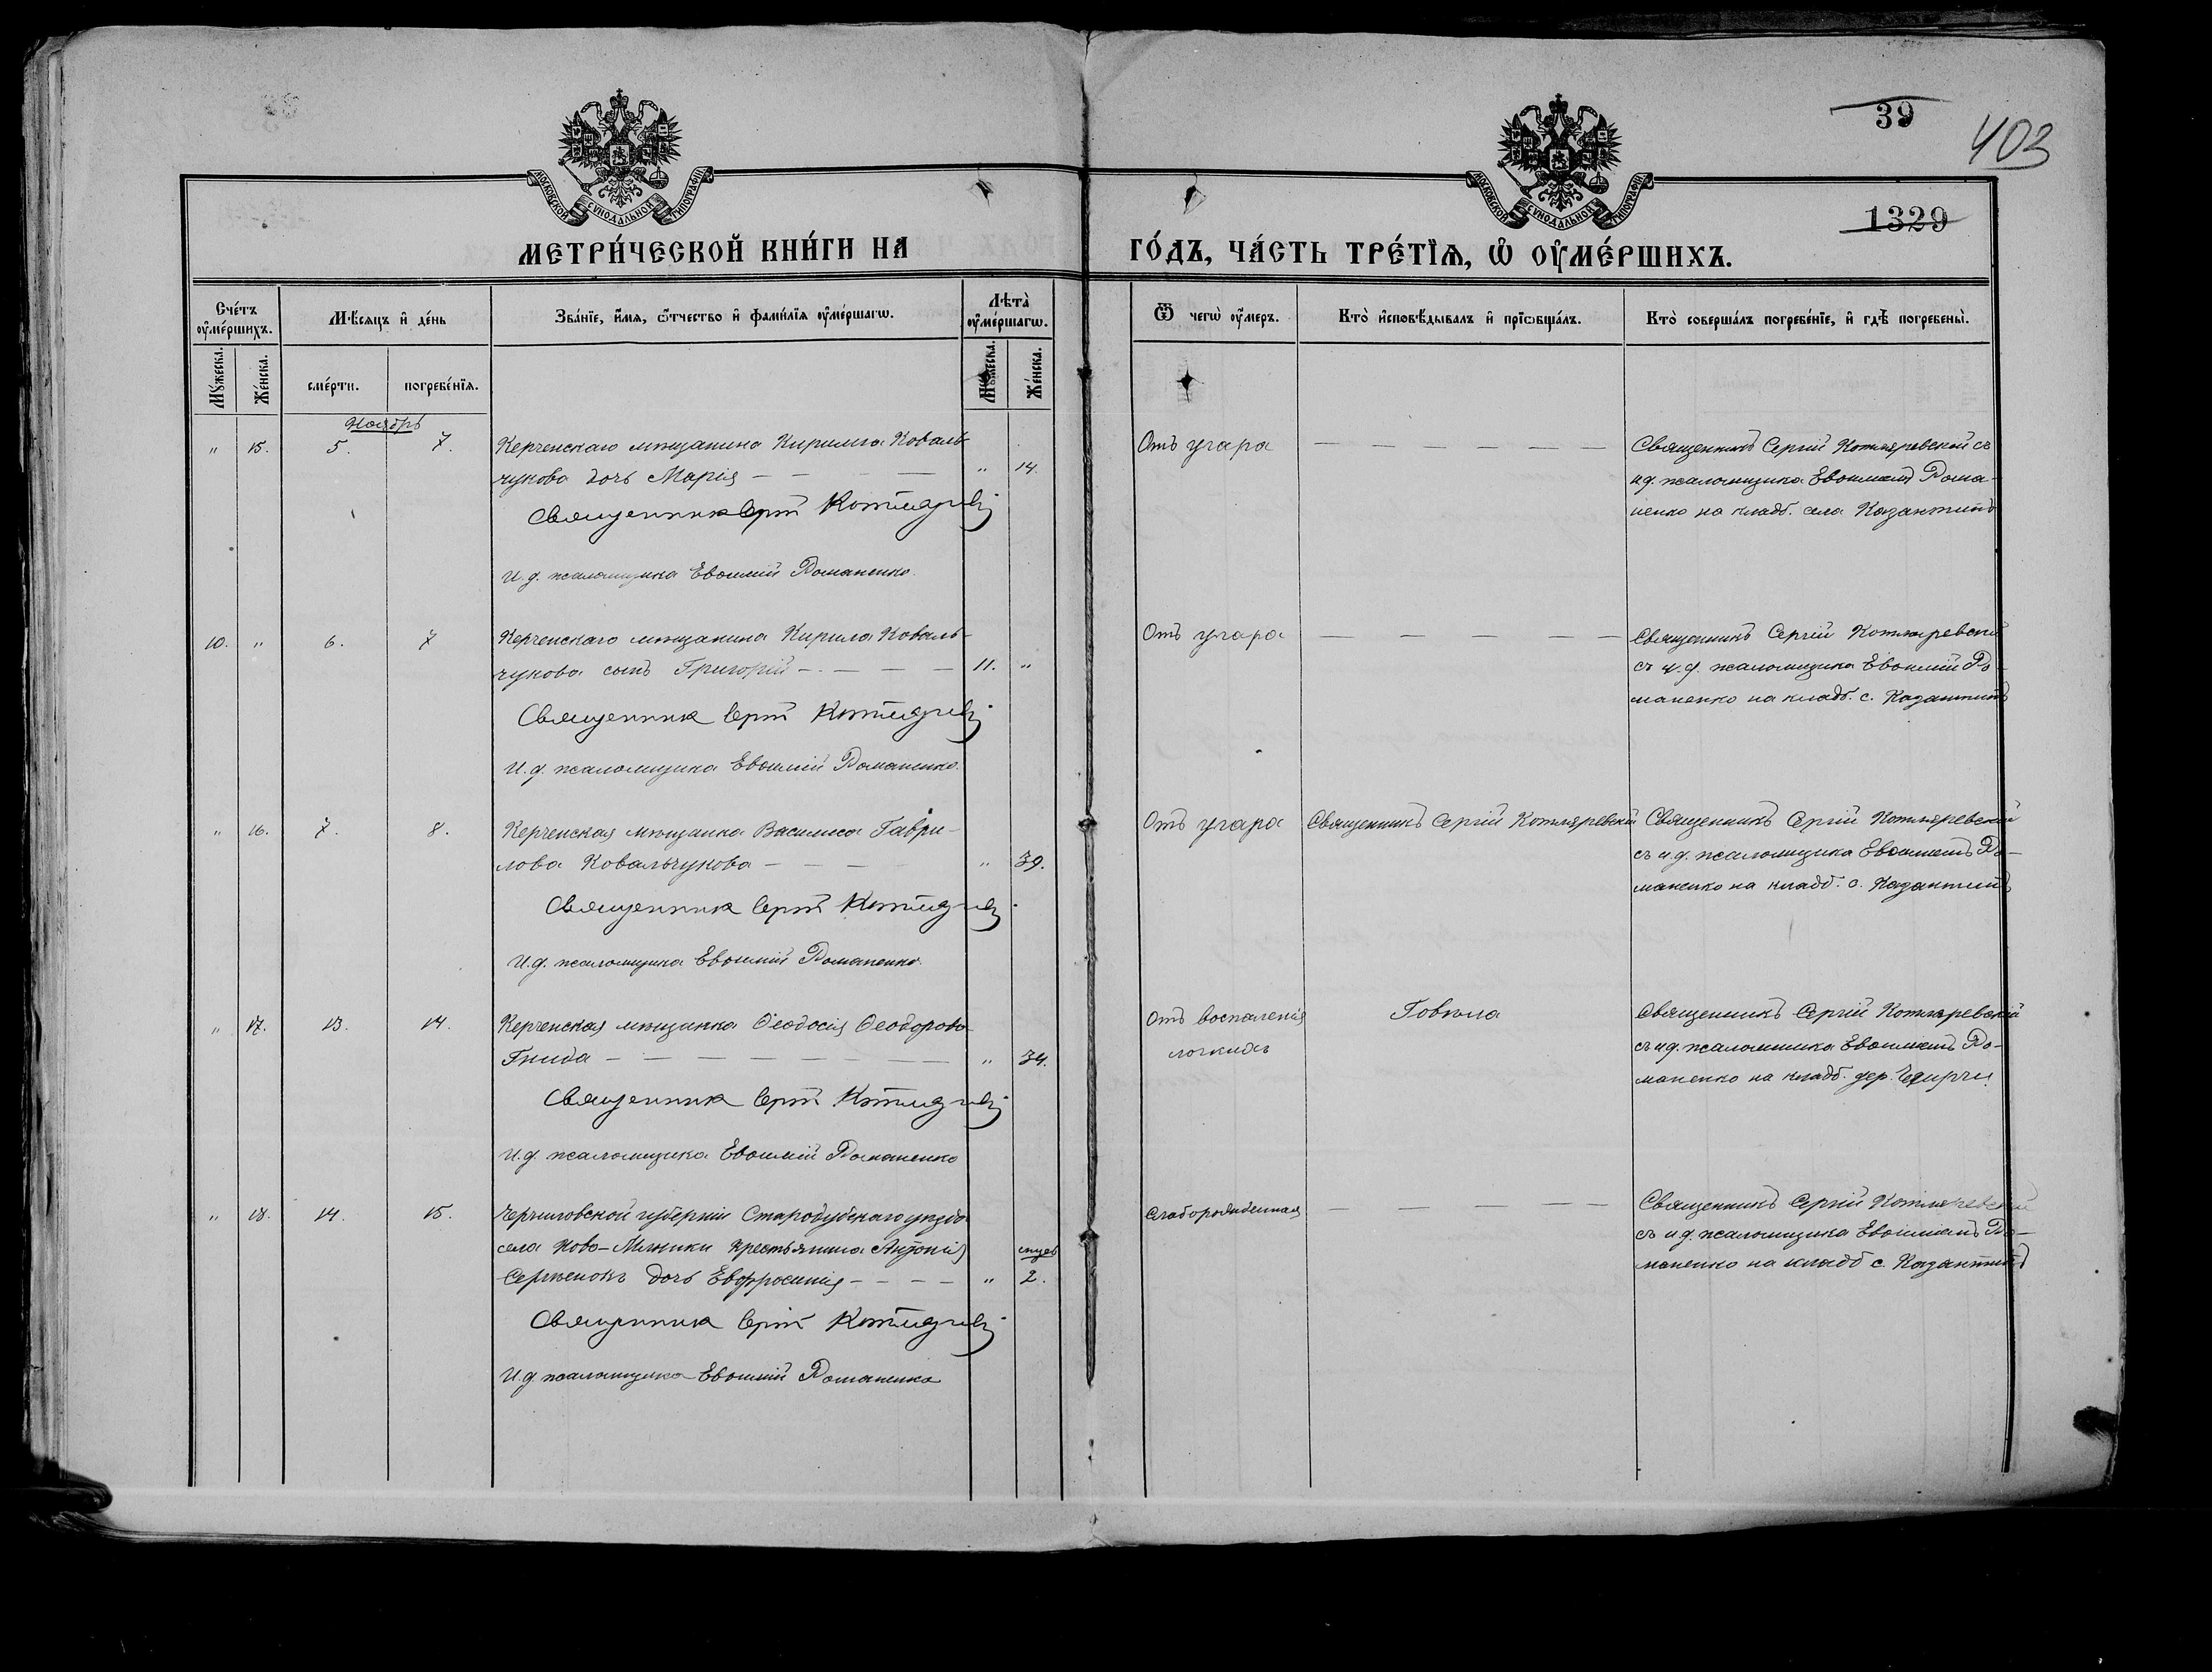 39
403
1329
МОСКОВСКОЙ СѴНОДАЛЬНОЙ ТИПОГРАФІИ
МОСКОВСКОЙ СѴНОДАЛЬНОЙ ТИПОГРАФІИ
МЕТРИ́ЧЕСКОЙ КНИ́ГИ НА ГО́ДЪ, ЧА́СТЬ ТРЕ́ТЇѦ, Ѡ҆ ОУ҆МЕ́РШИХЪ.
Сче́тъ оу҆ме́ршихъ.
Мѣ́сяцъ и҆ де́нь
Зва́нїе, и҆́мя, ѻ҆́тчество и҆ фами́лїя оу҆ме́ршагѡ.
Лѣта̀ оу҆ме́ршагѡ.
Ѿ чегѡ̀ оу҆́меръ.
Кто̀ и҆сповѣ́дывалъ и҆ прїѡбща́лъ.
Кто̀ соверша́лъ погребе́нїе, и҆ гдѣ̀ погребены̀.
Мꙋ́жеска.
Же́нска.
сме́рти.
погребе́нїя.
Мꙋ́жеска.
Же́нска.
Ноябрь
" 15. 5. 7. Керченскаго мѣщанина Кирилла Коваль-
чукова дочь Марія — " 14.
Священникъ Сергій Котляревскій
И.д. псаломщика Евѳимій Романенко.
Отъ угара — — — — —
Священникъ Сергій Котляревскій съ
и.д. псаломщика Евѳиміемъ Рома-
ненко на кладб. села Казантипъ
10. " 6. 7 Керченскаго мѣщанина Кирила Коваль-
чукова сынъ Григорій — — — — 11. "
Священникъ Сергій Котляревскій
И.д. псаломщика Евѳимій Романенко.
Отъ угара — — — — —
Священникъ Сергій Котляревскій
съ и.д. псаломщика Евѳимій Ро-
маненко на кладб. с. Казантипъ
" 16. 7. 8. Керченская мѣщанка Василиса Гаври-
лова Ковальчукова — — — — " 39.
Священникъ Сергій Котляревскій
И.д. псаломщика Евѳимій Романенко.
Отъ угара
Священникъ Сергій Котляревскій
Священникъ Сергій Котляревскій
съ и.д. псаломщика Евѳиміемъ Ро-
маненко на кладб. с. Казантипъ
" 17. 13. 14. Керченская мѣщанка Ѳеодосія Ѳеодорова
Гнида — — — — — — " 34.
Священникъ Сергій Котляревскій
И.д. псаломщика Евѳимій Романенко
Отъ воспаленія
легкихъ
Говѣла
Священникъ Сергій Котляревскій
съ и.д. псаломщика Евѳиміемъ Ро-
маненко на кладб. дер.
" 18. 14. 15. Черниговской губерніи Стародубскаго уѣзда
села Ново-Млинки крестьянина Антонія
дочь Евфросинія — — — — " 2.
Священникъ Сергій Котляревскій
И.д. псаломщика Евѳимій Романенко
Слаборожденная — — — — —
Священникъ Сергій Котляревскій
съ и.д. псаломщика Евѳиміемъ Ро-
маненко на кладб с. Казантипъ